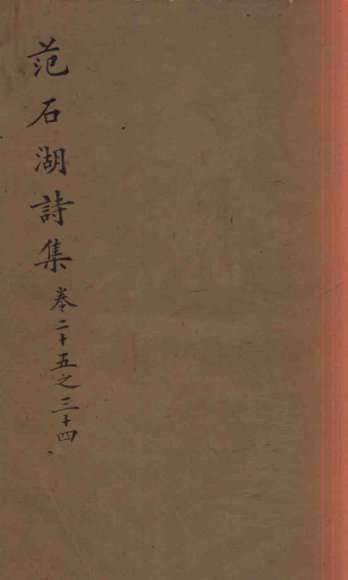 范石湖詩集卷二十五之三十四